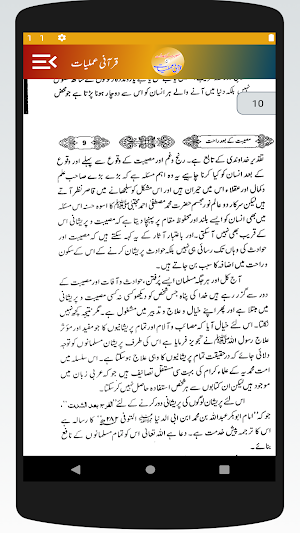 قرآنی عملیات
نہیں بلکہ دنیا میں آنے والے ہر انسان کو اس سے دوچار ہونا پڑتا ہے جو محض
10
مصیبت کے بعد راحت
9
تقدیر خداوندی کے تابع ہے۔ رنج و غم اور مصیبت کے وقوع سے پہلے اور وقوع
کے بعد انسان کو کیا کرنا چاہیے یہ وہ اہم مسئلہ ہے کہ بڑے بڑے صاحب علم
وکمال اور عقلاء اس میں حیران ہیں اور اس مشکل کو سلجھانے میں قاصر نظر آتے
ہیں لیکن سرکار دو عالم نور مجسم حضرت محمد مصطفی احمد مجتبیٰ ﷺ کا اسوہ حسنہ اس مسئلہ
میں بھی انسان کو ایسے بلند اور محفوظ مقام پر پہنچا دیتا ہے کہ مصیبت و پریشانی اس
کے قریب بھی نہیں آ سکتی۔ اور باعتبار آثار کے یہ کہہ سکتے ہیں کہ مصیبت اور
حوادث کی وہاں تک رسائی ہی نہیں بلکہ حوادث پریشان کرنے کے اس کے سکون
و راحت میں اضافہ کا سبب بن جاتے ہیں۔
آج کل اور ہر جگہ مسلمان ایسے پرفتن، حوادث و آفات اور مصیبت کے
دور سے گزر رہے ہیں خدا کی پناہ جس شخص کو دیکھو کسی نہ کسی مصیبت و پریشانی
میں مبتلا ہے اور پھر اپنے خیال و علاج و تدبیر میں مشغول ہے۔ مگر نتیجہ کچھ نہیں
نکلتا۔ اس لئے خیال آیا کہ مصائب و آلام اور تمام پریشانیوں کا جو مفید اور مؤثر
علاج رسول اللہ ﷺ نے تجویز فرمایا ہے اس کی طرف پریشان مسلمانوں کو توجہ
دلائی جائے کہ درحقیقت تمام پریشانیوں کا وہی علاج ہو سکتا ہے۔ اس سلسلہ میں
امت محمدیہ کے علماء کرام کی بہت سی مستقل تصانیف ہیں جو کہ عربی زبان میں
موجود ہیں لیکن ان کتابوں سے ہر شخص استفادہ حاصل نہیں کر سکتا۔
اس لئے پریشان لوگوں کی پریشانی دور کرنے کے لئے "الفرج بعد الشدت"،
جو کہ "امام ابوبکر عبداللہ بن محمد ابن ابی الدنیا المتوفی ۲۸۱ھ" کا رسالہ ہے
اس کا ترجمہ پیش خدمت ہے۔ دعا ہے اللہ تعالیٰ اس کو تمام مسلمانوں کے نافع
بنائے۔